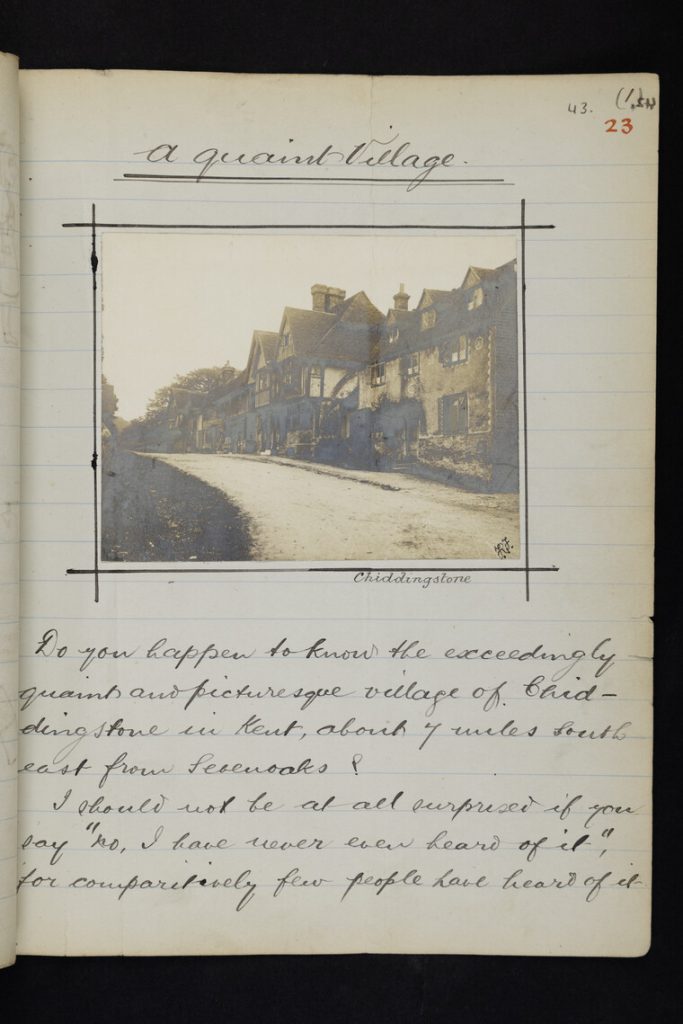 43.
23
A quaint Village.
Chiddingstone
Do you happen to know the exceedingly
quaint and picturesque village of Chid-
dingstone in Kent, about 7 miles south
east from Sevenoaks?
I should not be at all surprized if you
say "No, I have never even heard of it",
for comparitively few people have heard of it